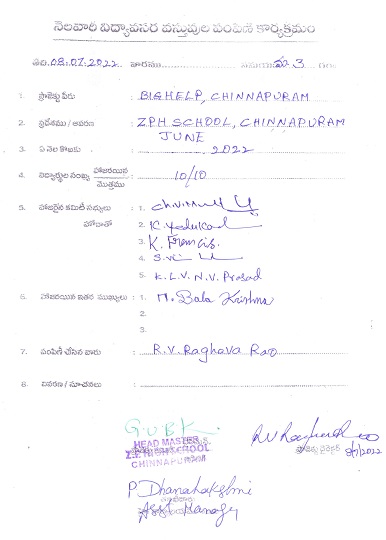 నెలవారి విద్యావసర వస్తువుల పంపిణీ కార్యక్రమం
తేది. 08.07.2022 వారము సమయం మ 3 గం
1. ప్రాజెక్టు పేరు : BIGHELP, CHINNAPURAM
2. ప్రదేశము / ఆవరణ : ZPH SCHOOL, CHINNAPURAM
JUNE
3. ఏ నెల కొరకు : 2022
4. విద్యార్థుల సంఖ్య హాజరయిన / మొత్తము : 10/10
5. హాజరైన కమిటీ సభ్యులు : 1.
హోదాతో 2.
3. K. Francis.
4.
5. K.L.V.N.V. Prasad
6. హాజరయిన ఇతర ముఖ్యులు : 1. M. Bala Krishna
2.
3.
7. పంపిణీ చేసిన వారు : R.V. Raghava Rao
8. వివరణ / సూచనలు :
G.U.B.K.
HEAD MASTER
Z.P. HIGH SCHOOL
CHINNAPURAM
ప్రాజెక్టు డైరెక్టర్ 8/7/2022
P Dhanalakshmi
Asst Manager